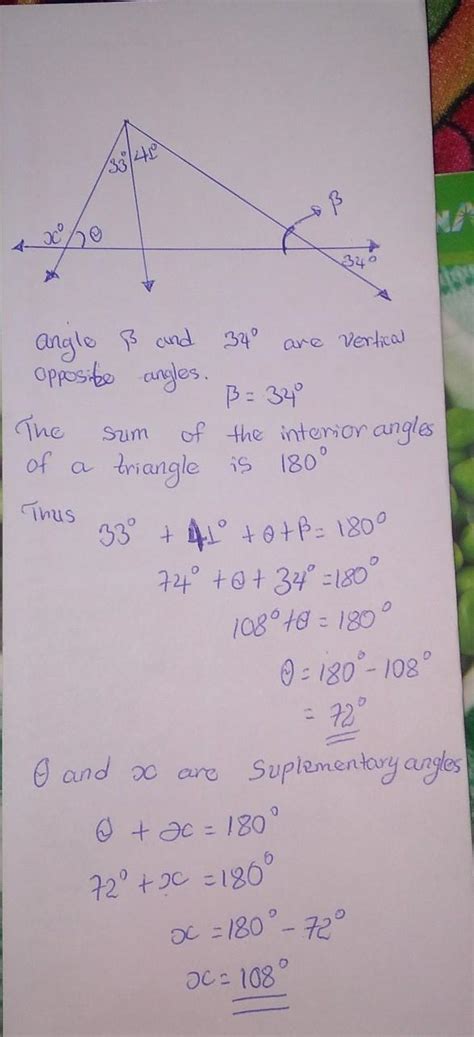 33° 41°
β
x° θ
34°
angle β and 34° are vertical
opposite angles.
β = 34°
The sum of the interior angles
of a triangle is 180°
Thus
33° + 41° + θ + β = 180°
74° + θ + 34° = 180°
108° + θ = 180°
θ = 180° - 108°
= 72°
θ and x are Suplementary angles
θ + x = 180°
72° + x = 180°
x = 180° - 72°
x = 108°